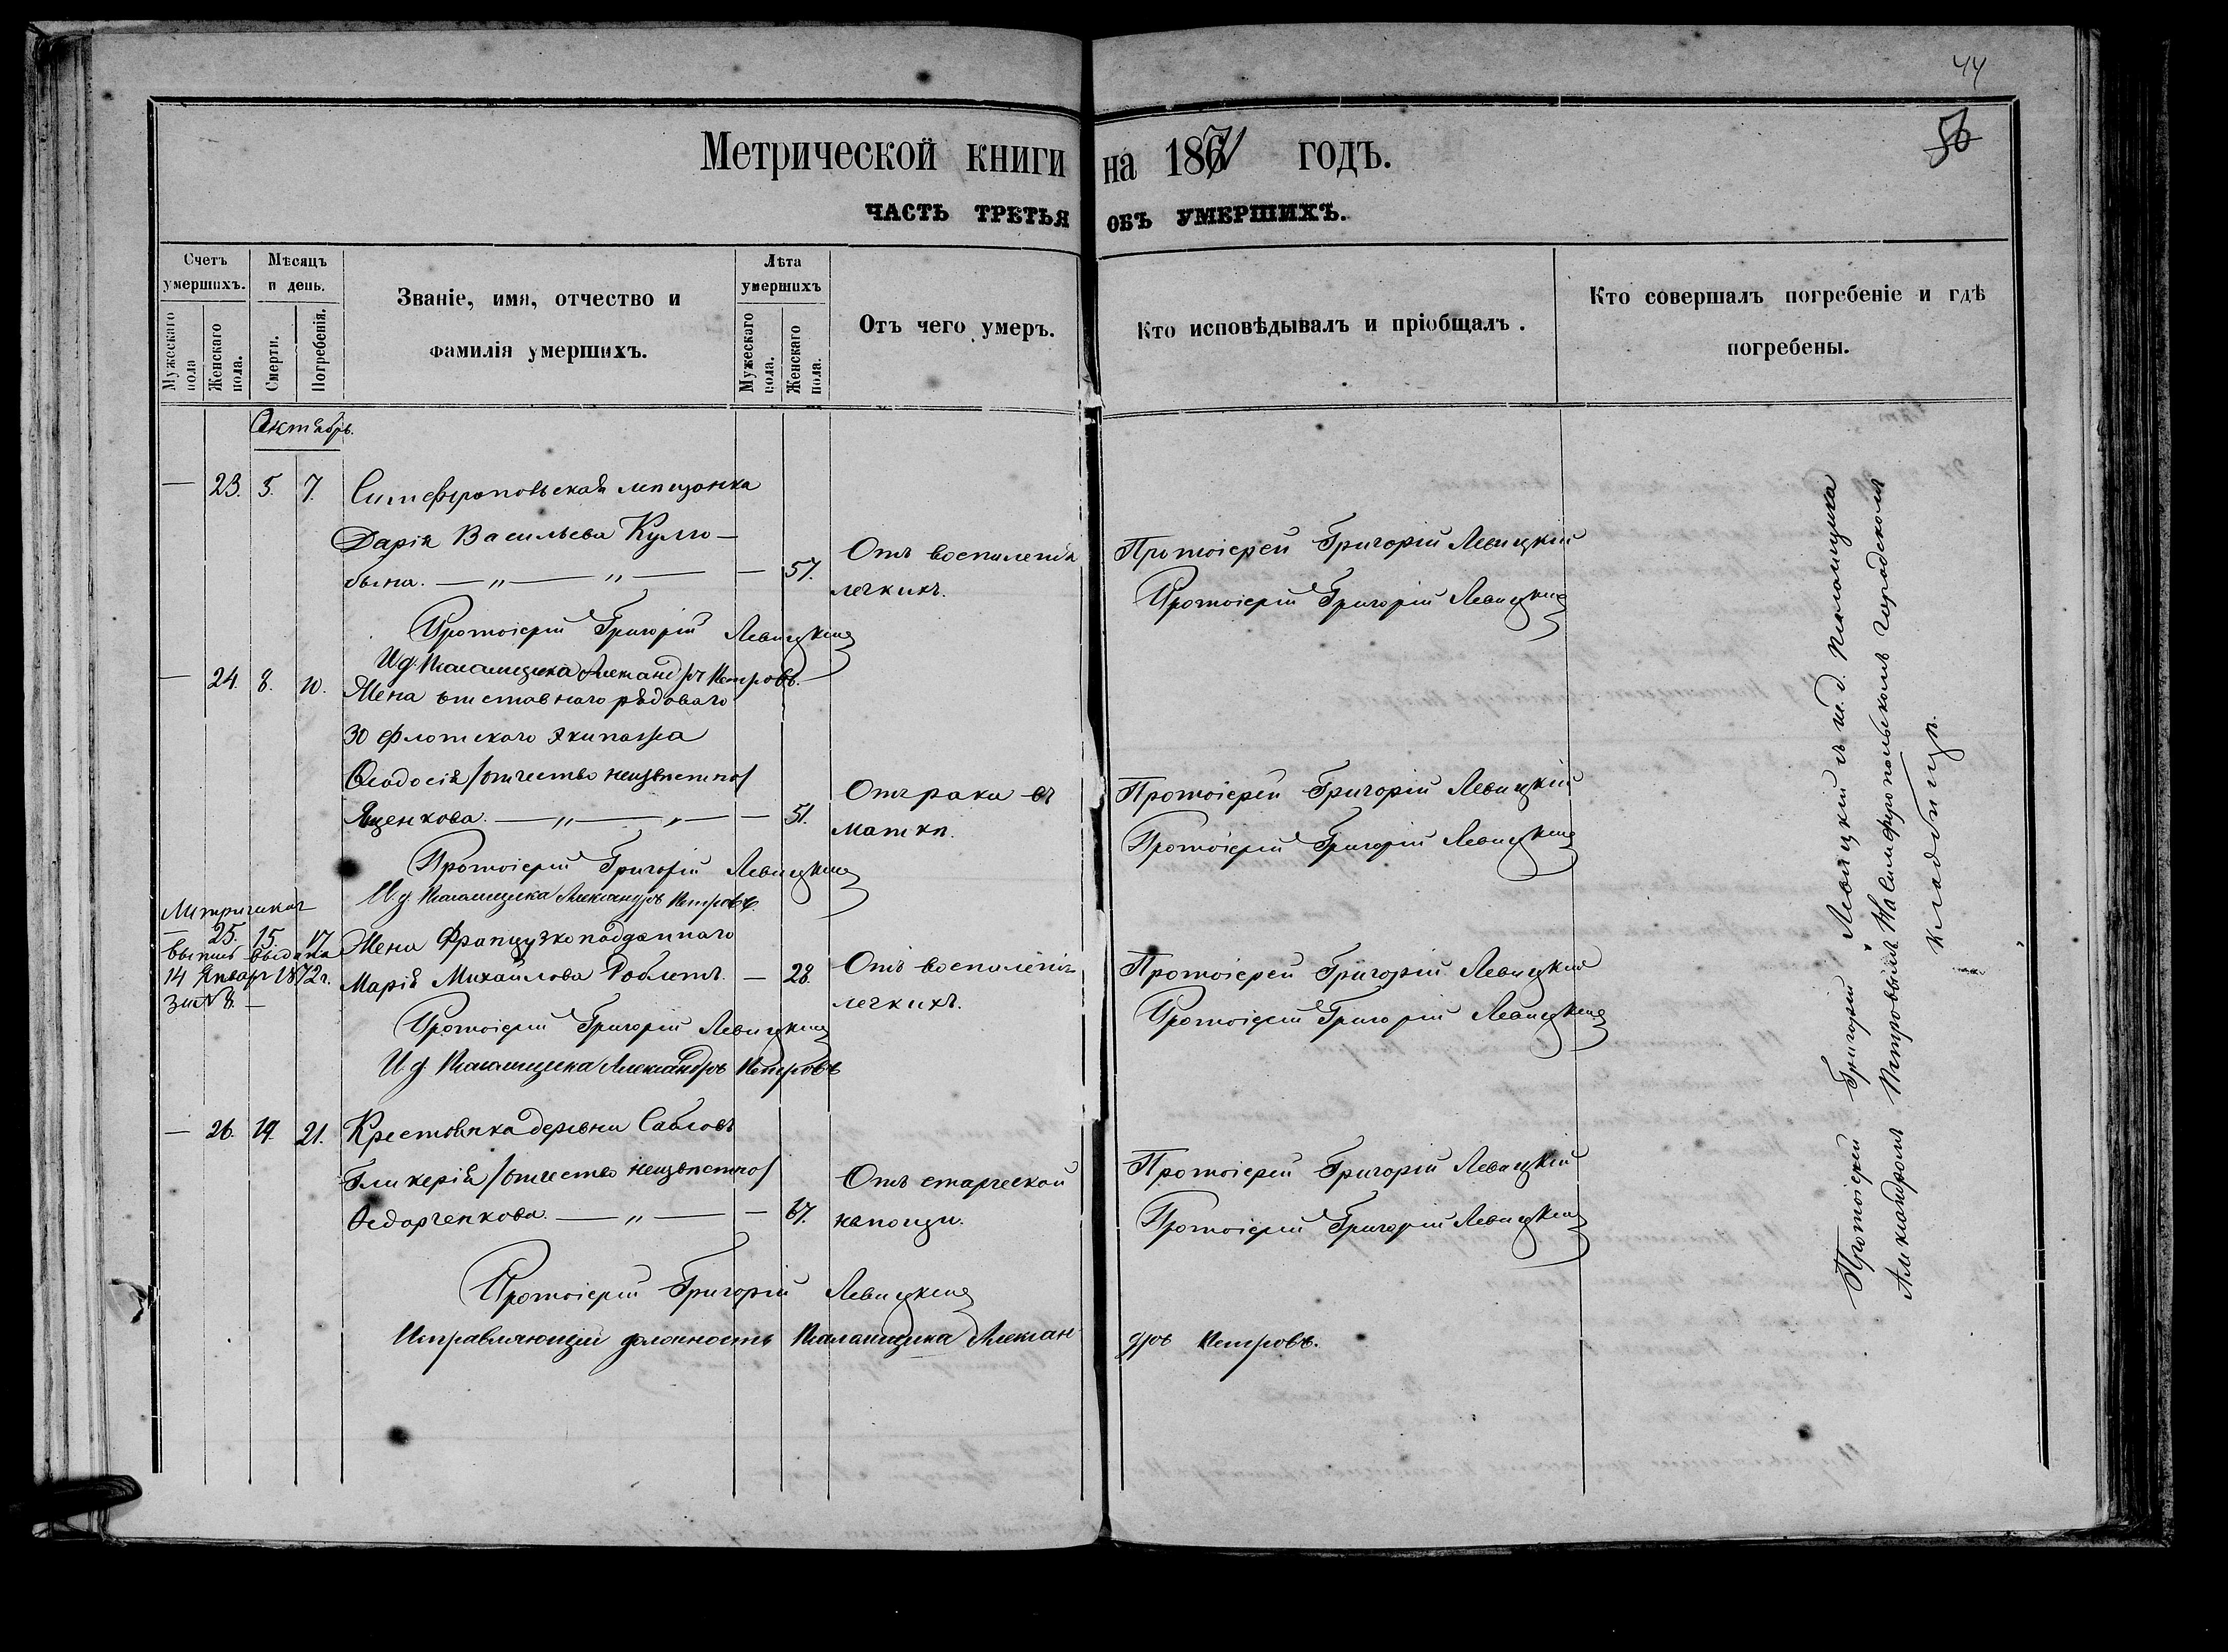 44
56
Метрической книги на 1871 годъ.
ЧАСТЬ ТРЕТЬЯ ОБЪ УМЕРШИХЪ.
Счетъ умершихъ.
Мужескаго пола
Женскаго пола.
Мѣсяцъ и день.
Смерти.
Погребенія.
Званіе, имя, отчество и
фамилія умершихъ.
Лѣта умершихъ
Мужескаго пола.
Женскаго пола.
Отъ чего умеръ.
Кто исповѣдывалъ и пріобщалъ.
Кто совершалъ погребеніе и гдѣ
погребены.
Октябрь.
— 23. 5. 7. Симферопольская мещанка
Дарія Васильева
бина. — „ — „ — — 57.
Отъ воспаленія
легкихъ.
Протоіерей Григорій Левицкій
Протоіерей Григорій Левицкій
Протоіерей Григорій Левицкій
И.д. Псаломщика Александръ Петровъ.
— 24. 8. 10. Жена отставнаго рядоваго
30 флотскаго экипажа
Ѳеодосія /отчество неизвѣстно/
Ященкова. — „ — „ — — 51.
Отъ рака въ
маткѣ.
Протоіерей Григорій Левицкій
Протоіерей Григорій Левицкій
Протоіерей Григорій Левицкій
И.д. Псаломщика Александръ Петровъ.
— 25. 15. 17. Жена Французкоподданнаго
Марія Михайлова Роблетъ. — 28.
Отъ воспаленія
легкихъ.
Протоіерей Григорій Левицкій
Протоіерей Григорій Левицкій
выдана
14 Январь 1872 г.
за № 8. —
Протоіерей Григорій Левицкій
И.д. Псаломщика Александръ Петровъ
— 26. 19. 21. Крестьянка деревни Сабловъ
Гликерія /отчество неизвѣстно/
Ѳедорченкова. — „ — — 67.
Отъ старческой
немощи.
Протоіерей Григорій Левицкій
Протоіерей Григорій Левицкій
Протоіерей Григорій Левицкій
Исправляющій должность Псаломщика Александръ Петровъ.
Протоіерей Григорій Левицкій съ и.д. Псаломщика
Александромъ Петровымъ На Симферопольскомъ городскомъ
кладбищѣ.